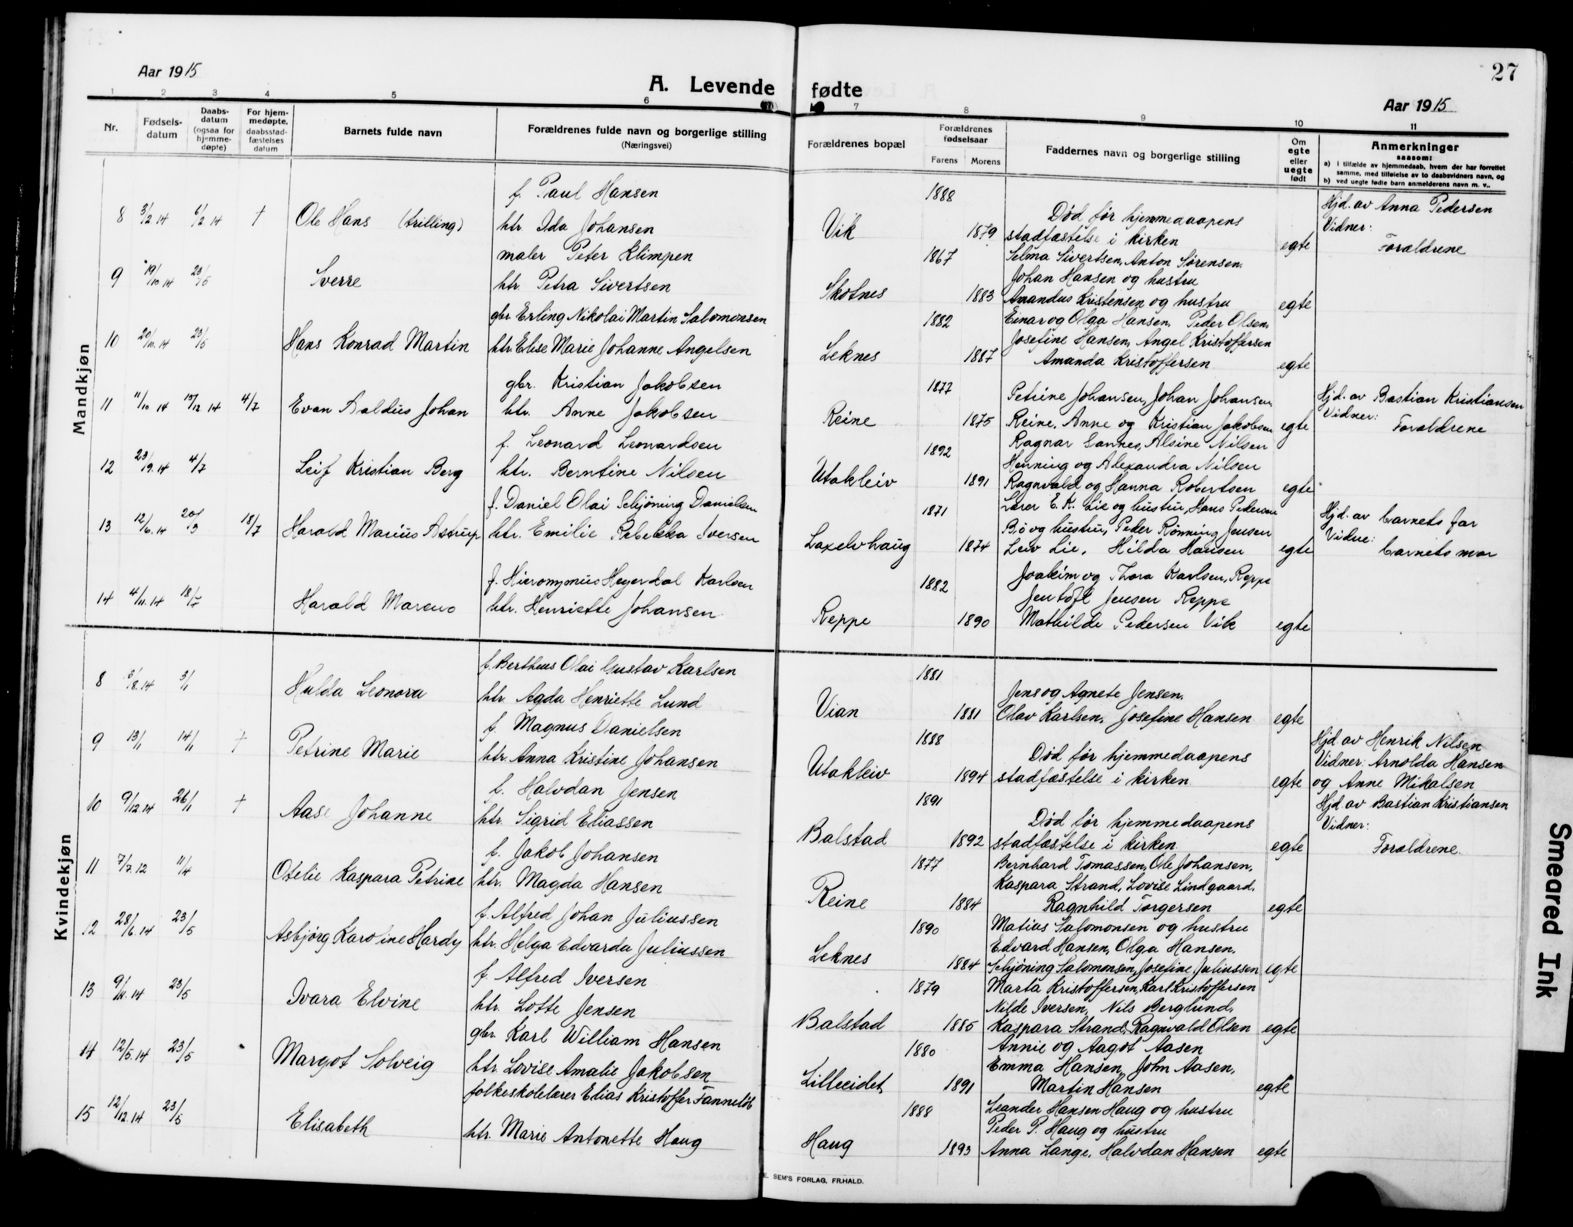 Aar 1915
A. Levende fødte
27
Aar 1915
1 2 3 4 5 6 7 8 9 10 11
Nr. Fødsels-datum Daabs-datum (ogsaa for hjemme-døpte) For hjem-medøpte, daabsstad-fæstelses datum Barnets fulde navn Forældrenes fulde navn og borgerlige stilling (Næringsvei) Forældrenes bopæl Forældrenes fødselsaar Farens Morens Faddernes navn og borgerlige stilling Om egte eller uegte født Anmerkninger saasom: a) i tilfælde av hjemmedaab, hvem der har forrettet samme, med tilføielse av to daabsvidners navn, og b) ved uegte fødte barn anmelderens navn m. v..
Mandkjøn
f. Paul Hansen 1888 Hjd. av Anna Pedersen
8 3/2 14 6/2 14 † Ole Hans (trilling) htr Ida Johansen Vik 1879 Død før hjemmedaapens stadfæstelse i kirken egte Vidner: Forældrene
maler Peter Klimpen 1867 Selma Sivertsen, Anton Sørensen,
9 19/10 14 23/5 Sverre htr. Petra Sivertsen Skotnes 1883 Johan Hansen og hustru Amandus Kristensen og hustru egte
gbr Erling Nikolai Martin Salomonsen 1882 Einar og Olga Hansen, Peder Olsen,
10 20/11 14 23/5 Hans Konrad Martin htr Elise Marie Johanne Angelsen Leknes 1887 Josefine Hansen, Angel Kristoffersen Amanda Kristoffersen egte
gbr. Kristian Jakobsen 1877 Petrine Johansen, Johan Johansen Hjd. av Bastian Kristiansen
11 11/10 14 13/12 14 4/7 Evan Aaldius Johan htr. Anne Jakobsen Reine 1875 Reine, Anne og Kristian Jakobsen egte Vidner: Forældrene
f. Leonard Leonardsen 1892 Ragnar Hannes, Alsine Nilsen
12 23/9 14 4/7 Leif Kristian Berg htr. Berntine Nilsen Utakleiv 1891 Henning og Alexandra Nilsen Ragnvald og Hanna Robertsen egte
f. Daniel Olai Schjøning Danielsen 1871 Lærer E. K. Lie og hustru, Hans Pedersen Hjd. av barnets far
13 12/6 14 20/3 18/7 Harald Marius Astrup htr. Emilie Rebekka Iversen Laxelvhaug 1874 Bø og hustru, Peder Rønning Jensen Leiv Lie, Hilda Hansen egte Vidne: barnets mor
f. Hieronymus Heyerdal Karlsen 1882 Joakim og Thora Karlsen, Reppe
14 4/11 14 18/7 Harald Marcus htr. Henriette Johansen Reppe 1890 Jentoft Jensen Reppe Mathilde Pedersen Vik egte
Kvindekjøn
f. Bertheus Olai Gustav Karlsen 1881
8 14 3/1 Hulda Leonora htr Agda Henriette Lund Vian 1881 Jens og Agnete Jensen, Olav Karlsen, Josefine Hansen egte
f Magnus Danielsen 1888 Hjd av Henrik Nilsen
9 13/1 14/1 † Petrine Marie htr Anna Kristine Johansen Utakleiv 1894 Død før hjemmedaapens stadfæstelse i kirken egte Vidner: Arnolda Hansen og Anne Mikalsen
f. Halvdan Jensen 1891 Hjd av Bastian Kristiansen
10 9/12 14 26/1 † Aase Johanne htr. Sigrid Eliassen Balstad 1892 Død før hjemmedaapens stadfæstelse i kirken egte Vidner: Forældrene
f. Jakob Johansen 1877 Bernhard Tomassen, Ole Johansen,
11 7/7 12 11/4 Otelie Kaspara Petrine htr. Magda Hansen Reine 1884 Kaspara Strand, Lovise Lindgaard, Ragnhild Torgersen egte
f. Alfred Johan Juliussen 1890 Matias Salomonsen og hustru
12 28/6 14 23/5 Asbjørg Karoline Hardy htr. Helga Edvarda Juliussen Leknes 1884 Edvard Hansen, Olga Hansen, Schjøning Salomonsen, Josefine Juliussen egte
f Alfred Iversen 1879 Marta Kristoffersen, Karl Kristoffersen
13 9/11 14 23/5 Ivara Elvine htr. Lotte Jensen Balstad 1885 Nilde Iversen, Nils Berglund, Kaspara Strand, Ragnvald Olsen egte
gbr Karl William Hansen 1880 Annie og Aagot Aasen
14 12/5 14 23/5 Margot Solveig htr Lovise Amalie Jakobsen Lilleeidet 1891 Emma Hansen, John Aasen, Martin Hansen egte
folkeskolelærer Elias Kristoffer Tanneløb 1888 Leander Hansen Haug og hustru
15 12/12 14 23/5 Elisabeth htr. Marie Antonette Haug Haug 1893 Peder P. Haug og hustru Anna Lange, Halvdan Hansen egte
E. SEM'S FORLAG, FR.HALD.
Smeared Ink